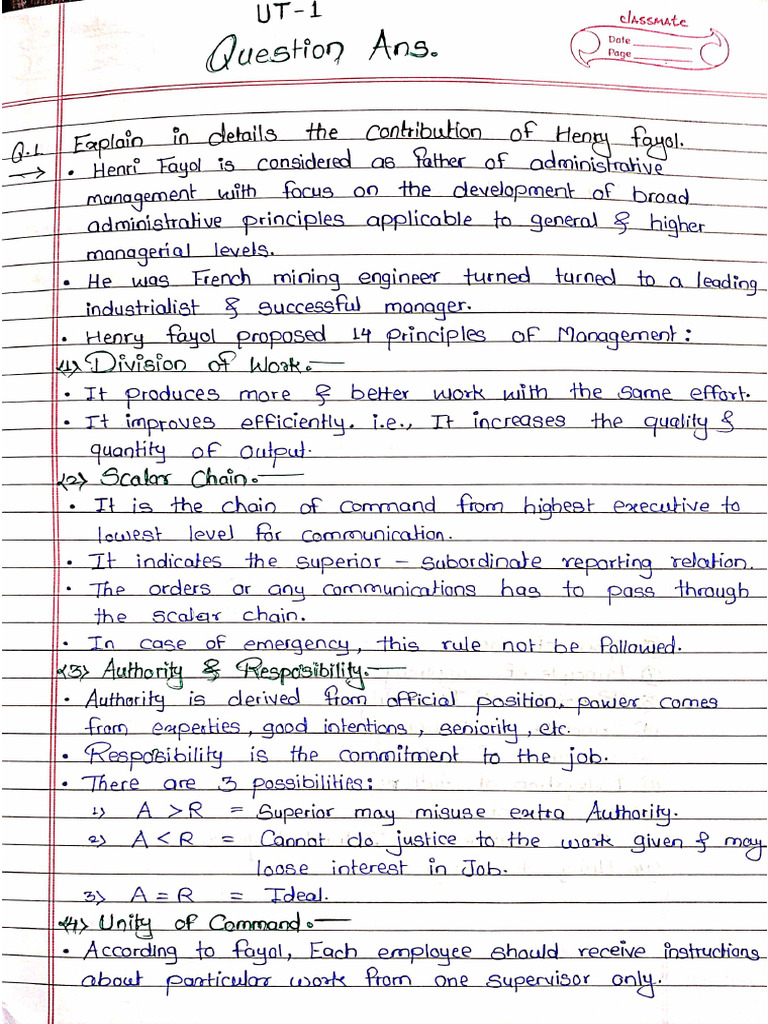 UT-1
classmate
Question Ans.
Date
Page
Q.1 Explain in details the contribution of Henry Fayol.
→ • Henri Fayol is considered as father of administrative
management with focus on the development of broad
administrative principles applicable to general & higher
managerial levels.
• He was French mining engineer turned turned to a leading
industrialist & successful manager.
• Henry fayol proposed 14 principles of Management:
(1) Division of Work.—
• It produces more & better work with the same effort.
• It improves efficiently. i.e., It increases the quality &
quantity of output.
(2) Scalar Chain.—
• It is the chain of command from highest executive to
lowest level for communication.
• It indicates the superior - subordinate reporting relation.
• The orders or any communications has to pass through
the scalar chain.
• In case of emergency, this rule not be followed.
(3) Authority & Resposibility.—
• Authority is derived from official position, power comes
from experties, good intentions, seniority, etc.
• Resposibility is the commitment to the job.
• There are 3 possibilities:
1) A > R = Superior may misuse extra Authority.
2) A < R = Cannot do justice to the work given & may
loose interest in Job.
3) A = R = Ideal.
(4) Unity of Command.—
• According to fayol, Each employee should receive instructions
about particular work from one supervisor only.